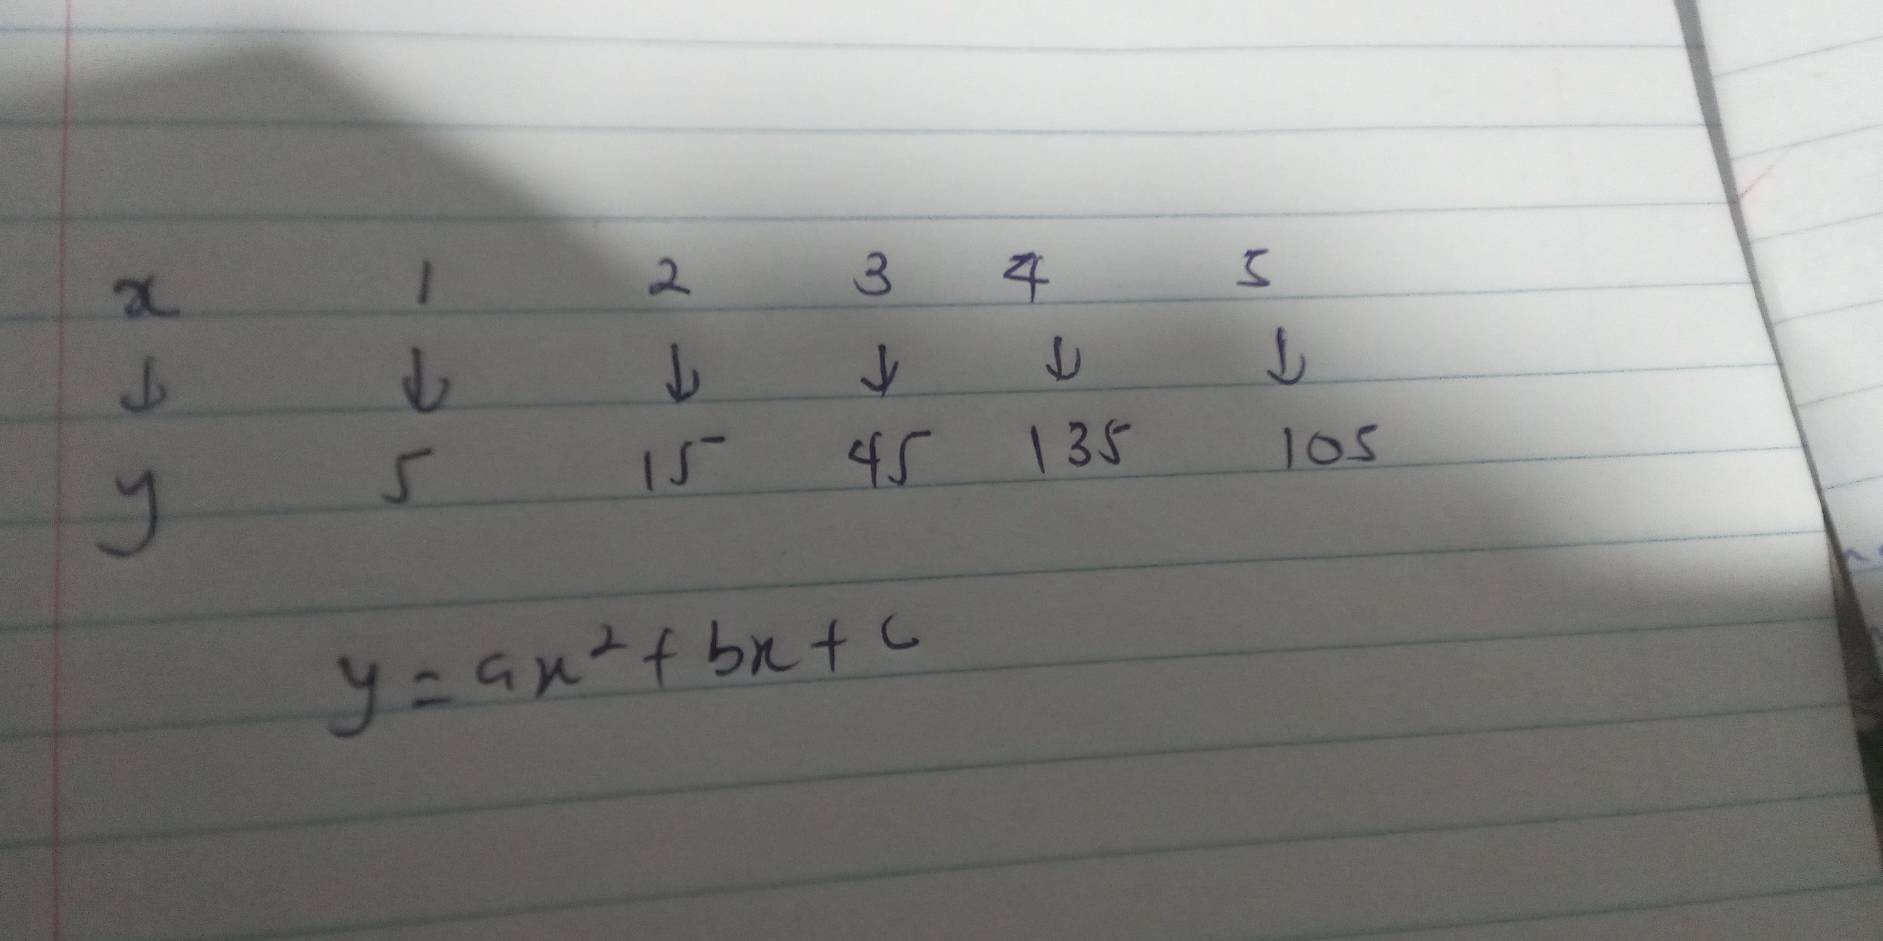 x 1 2 3 4 5
↓ ↓ ↓ ↓ ↓ ↓
y 5 15 45 135 105
y = ax² + bx + c